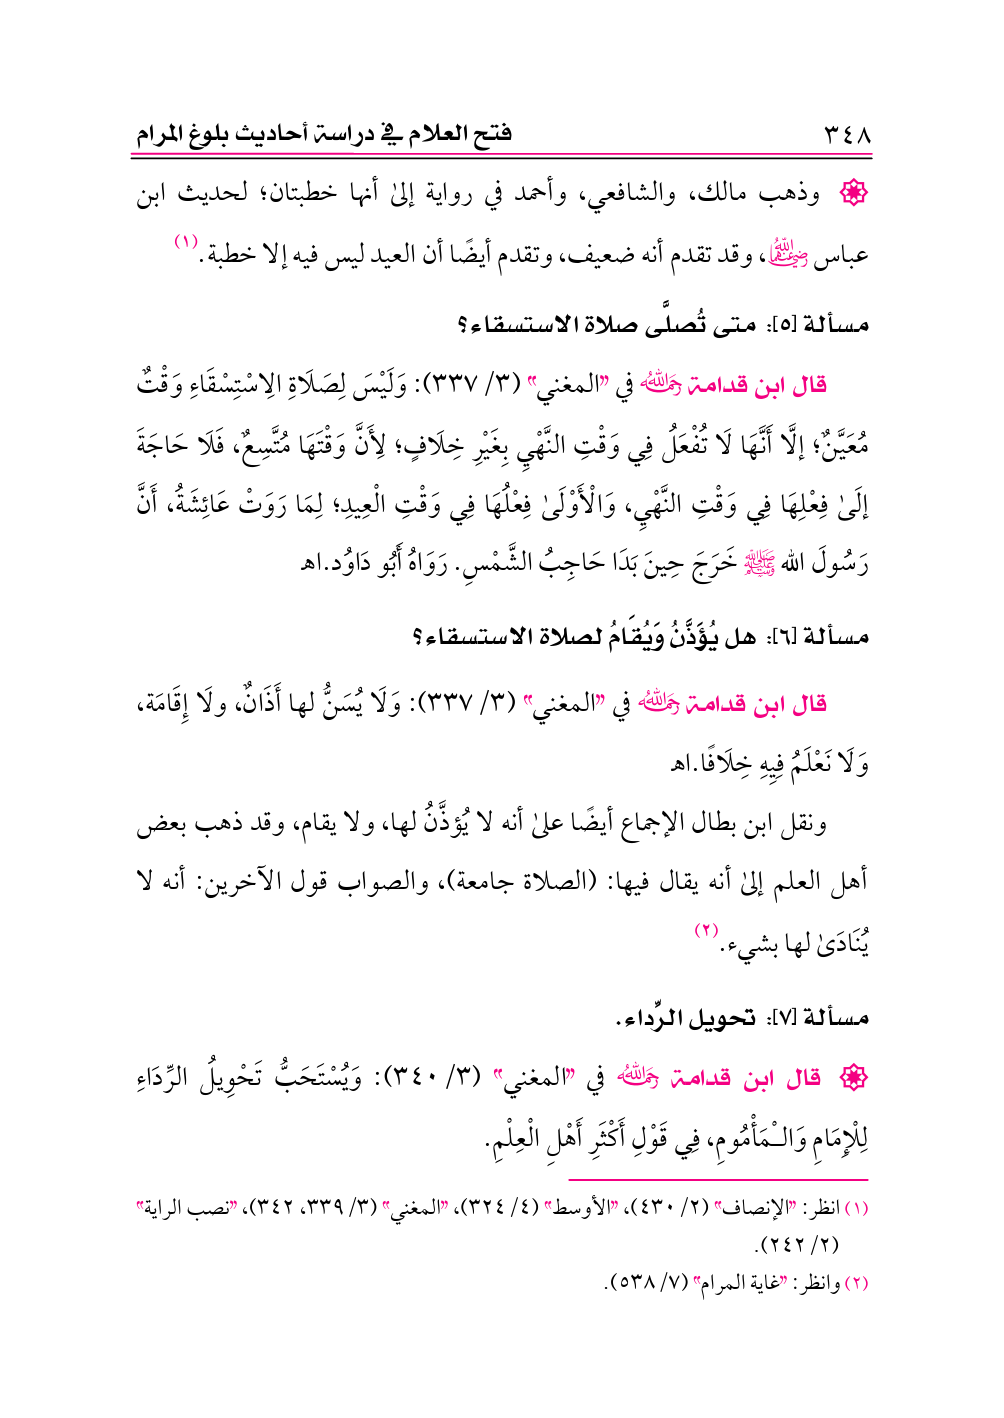 ٣٤٨ فتح العلام في دراسة أحاديث بلوغ المرام
۞ وذهب مالك، والشافعي، وأحمد في رواية إلىٰ أنها خطبتان؛ لحديث ابن
عباس رضي الله عنهما، وقد تقدم أنه ضعيف، وتقدم أيضًا أن العيد ليس فيه إلا خطبة.(١)
مسألة [٥]: متى تُصلَّى صلاة الاستسقاء؟
قال ابن قدامة رحمه الله في "المغني" (٣/ ٣٣٧): وَلَيْسَ لِصَلَاةِ الِاسْتِسْقَاءِ وَقْتٌ
مُعَيَّنٌ؛ إلَّا أَنَّهَا لَا تُفْعَلُ فِي وَقْتِ النَّهْيِ بِغَيْرِ خِلَافٍ؛ لِأَنَّ وَقْتَهَا مُتَّسِعٌ، فَلَا حَاجَةَ
إلَىٰ فِعْلِهَا فِي وَقْتِ النَّهْيِ، وَالْأَوْلَىٰ فِعْلُهَا فِي وَقْتِ الْعِيدِ؛ لِمَا رَوَتْ عَائِشَةُ، أَنَّ
رَسُولَ الله ﷺ خَرَجَ حِينَ بَدَا حَاجِبُ الشَّمْسِ. رَوَاهُ أَبُو دَاوُد.اهـ
مسألة [٦]: هل يُؤَذَّنُ وَيُقَامُ لصلاة الاستسقاء؟
قال ابن قدامة رحمه الله في "المغني" (٣/ ٣٣٧): وَلَا يُسَنُّ لها أَذَانٌ، ولَا إقَامَة،
وَلَا نَعْلَمُ فِيهِ خِلَافًا.اهـ
ونقل ابن بطال الإجماع أيضًا علىٰ أنه لا يُؤذَّنُ لها، ولا يقام، وقد ذهب بعض
أهل العلم إلىٰ أنه يقال فيها: (الصلاة جامعة)، والصواب قول الآخرين: أنه لا
يُنَادَىٰ لها بشيء.(٢)
مسألة [٧]: تحويل الرِّداء.
۞ قال ابن قدامة رحمه الله في "المغني" (٣/ ٣٤٠): وَيُسْتَحَبُّ تَحْوِيلُ الرِّدَاءِ
لِلْإِمَامِ وَالْـمَأْمُومِ، فِي قَوْلِ أَكْثَرِ أَهْلِ الْعِلْمِ.
(١) انظر: "الإنصاف" (٢/ ٤٣٠)، "الأوسط" (٤/ ٣٢٤)، "المغني" (٣/ ٣٣٩، ٣٤٢)، "نصب الراية"
(٢/ ٢٤٢).
(٢) وانظر: "غاية المرام" (٧/ ٥٣٨).